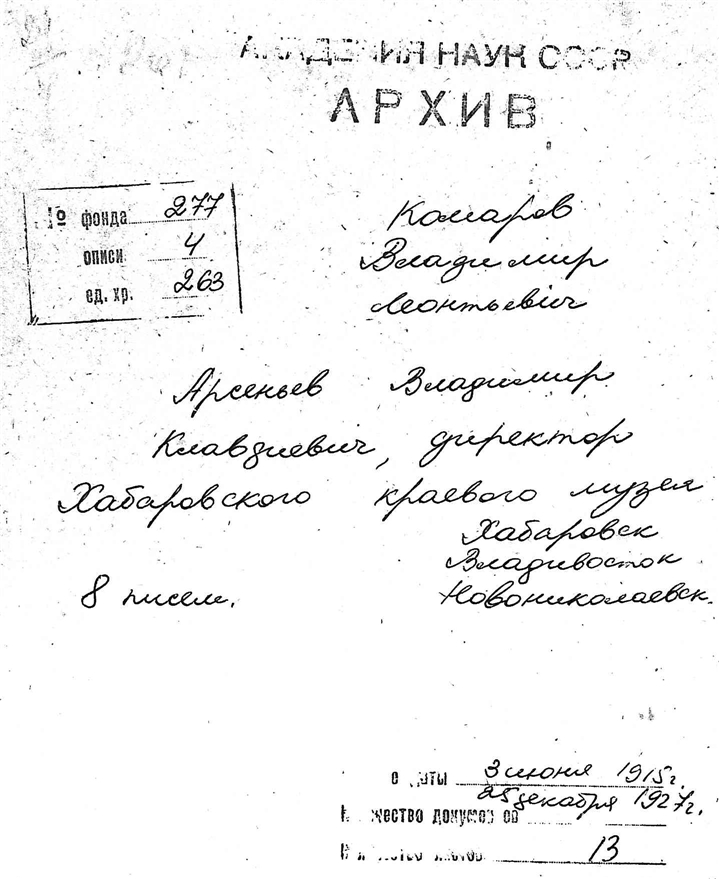 АКАДЕМИЯ НАУК СССР
АРХИВ
№ фонда 277
описи 4
ед. хр. 263
Комаров
Владимир
Леонтьевич
Арсеньев Владимир
Клавдиевич, директор
Хабаровского краевого музея
Хабаровск
Владивосток
8 писем.
Новониколаевск.
даты 3 июня 1915г.
25 декабря 1927г.
Количество документов
Количество листов 13